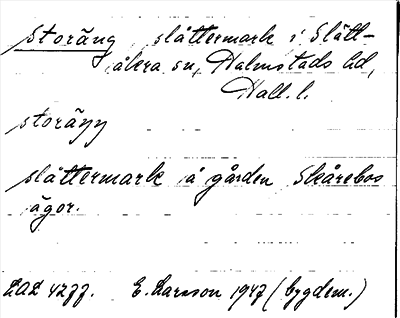 Storäng, slåttermark i Slätt-
åkra sn, Halmstads hd,
Hall. l.
storäŋ
slåttermark å gården Skårebos
ägor.
LAL 4277. E. Larsson 1947 (bygdem.)